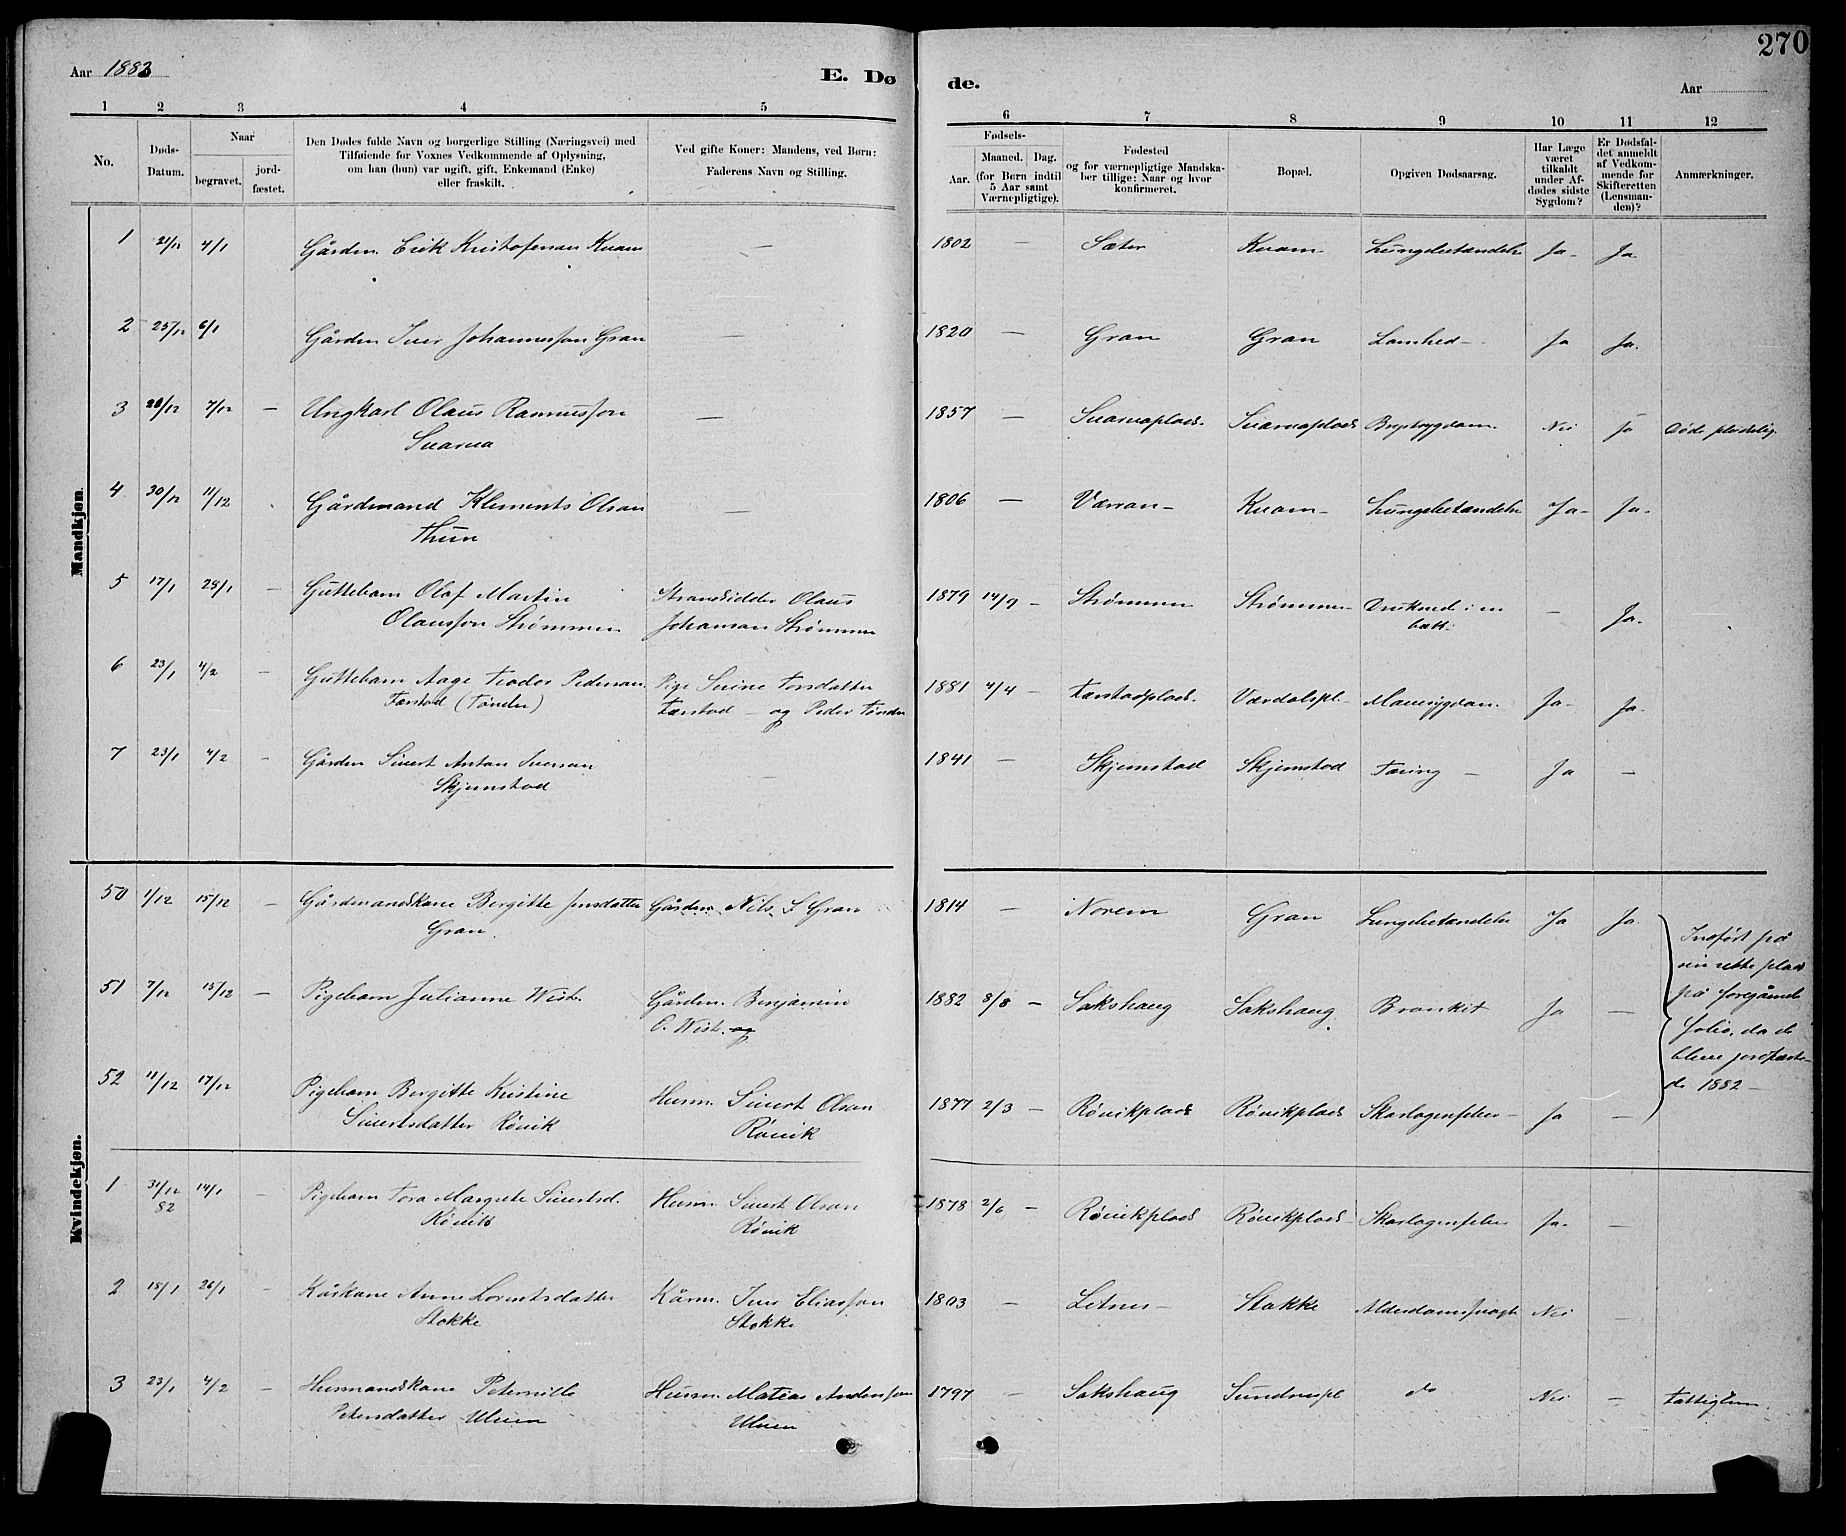 270
Aar 1883
E. Dø
de.
Aar
1 2 3 4 5
6 7 8 9 10 11 12
No.
Døds-Datum.
Naar
begravet.
jord-fæstet.
Den Dødes fulde Navn og borgerlige Stilling (Næringsvei) med
Tilføiende for Voxnes Vedkommende af Oplysning,
om han (hun) var ugift, gift, Enkemand (Enke)
eller fraskilt.
Ved gifte Koner: Mandens, ved Børn:
Faderens Navn og Stilling.
Fødsels-
Aar.
Maaned. Dag.
(for Børn indtil
5 Aar samt
Værnepligtige).
Fødested
og for værnepligtige Mandska-
ber tillige: Naar og hvor
konfirmeret.
Bopæl.
Opgiven Dødsaarsag.
Har Læge
været
tilkaldt
under Af-
dødes sidste
Sygdom?
Er Dødsfal-
det anmeldt
af Vedkom-
mende for
Skifteretten
(Lensman-
den)?
Anmærkninger.
Mandkjøn.
1 21/12 4/1 Gården. Erik Kristofersan Kvam — 1802 — Sæter Kvam Lungebetændelse Ja- Ja
2 25/12 6/1 Gården Iver Johannesson Gran — 1820 — Gran Gran Lamhed- Ja Ja.
3 28/12 7/12 — Ungkarl Olaus Rasmusson
Svarva — 1857 — Svarvaplads. Svarvaplads Brystsygdom. Nei Ja Døde pludselig.
4 30/12 11/12 Gårdmand Klements Olsan
Thun — 1806 — Værran- Kvam- Lungebetændelse Ja- Ja-
5 17/1 28/1 — Guttebarn Olaf Martin
Olausson Strømmen
Strandsidder Olaus
Johansan Strømmen
1879 14/9 - Strømmen Strømmen Drukned i en
bæk. — Ja.
6 23/1 4/2 — Guttebarn Aage Teodor Pedersan
Færstad (Tønder)
Pige Serine Torsdatter
Færstad — og Peder Tønder
1881 4/4 - Færstadplads. Værdalspl.- Mavesygdom. Ja- Ja-
7 23/1 4/2 — Gården Sivert Antan Iversan
Skjemstad — 1841 — Skjemstad Skjemstad Tæring — Ja —
Kvindekjøn.
50 1/12 15/12 — Gårdmandskane Bergitte Jensdatter
Gran.
Gården Nils S. Gran
1814 — Norem Gran Lungebetændelse Ja Ja
51 7/12 15/12 — Pigebarn Julianne Wist.
Gården. Benjamin
O. Wist. og
1882 8/8 — Sakshaug Sakshaug Bronkit Ja —
52 11/12 17/12 Pigebarn Bergitte Kristine
Sivertsdatter Røvik
Husm. Sivert Olsan
Røvik
1877 2/3 — Røvikplads Røvikplads Skarlagensfeber- Ja —
Indført på
sin rette plads
på foregående
folio, da de
bleve jordfæste-
de 1882 —
1 31/12 14/1 — Pigebarn Tora Margrete Sivertsd.
82 Røvik
Husm. Sivert Olsan
Røvik
1878 2/6 — Røvikplads Røvikplads Skarlagensfeber Ja- —
2 18/1 26/1 — Kårkane Anne Lorentsdatter
Stokke
Kårm. Iver Eliasson
Stokke
1803 — Letnes — Stokke Alderdomssvagh. Nei —
3 23/1 4/2 — Husmandskane Peternille
Petersdatter Ulven
Husm. Matias Anderssan
Ulven
1797 — Sakshaug Sundnespl do Nei — Fattiglem.